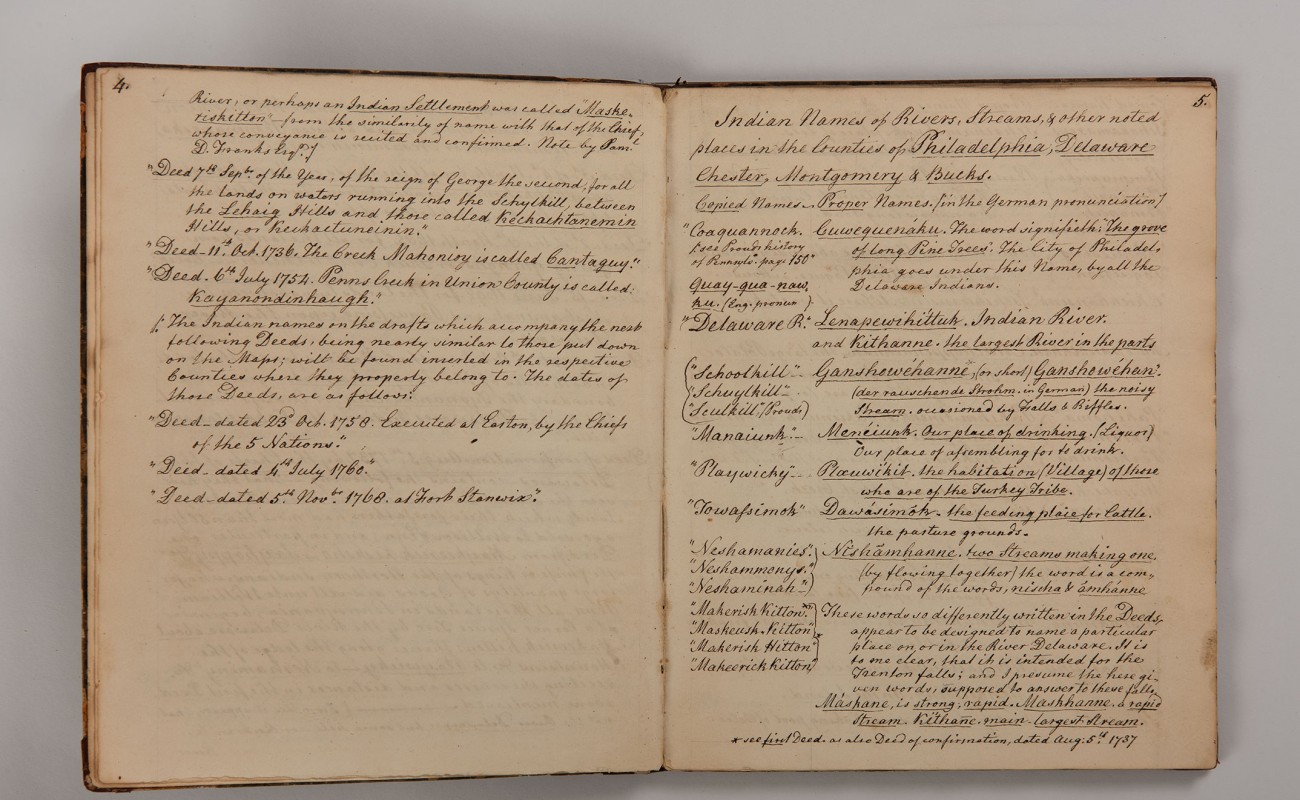 4.
River, or perhaps an Indian Settlement was called "Maske-
riskitton" - from the similarity of name with that of the Chief,
whose conveyance is recited and confirmed. Note by Pam.t
D. Franks Esqr.]
"Deed 7th Sepbr of the Year, of the reign of George the second, for all
the lands on waters running into the Schylkill, between
the Lehaig Hills and those called Keckachtanemin
Hills, or Keckaituneinin."
"Deed - 11th Oct. 1736. The Creek Mahonioy is called Cantaguy."
"Deed. 6th July 1754. Penns Creek in Union County is called:
Kayanondinhaugh."
[: The Indian names on the drafts which accompany the next
following Deeds, being nearly similar to those put down
on the Maps; will be found inserted in the respective
Counties where they properly belong to. The dates of
those Deeds, are as follows:
"Deed - dated 23d Oct. 1758. Executed at Easton, by the Chiefs
of the 5 Nations."
"Deed - dated 4th July 1760."
"Deed - dated 5th Novbr 1768. at Fort Stanwix."
5.
Indian Names of Rivers, Streams, & other noted
places in the Counties of Philadelphia, Delaware
Chester, Montgomery & Bucks.
Copied Names. Proper Names. [in the German pronunciation]
"Coaquannock. Cuwequenáku. The word signifieth; The grove
[: see Prouds history of long Pine Trees. The City of Philadel,
of Pennsylv. page 150" phia goes under this Name, by all the
Quay-qua-naw, Delaware Indians.
ku. (Eng. pronun)
"Delaware R." Lenapewihittuk. Indian River.
and Kithanne. the largest River in the parts
"Schoolkill" - Ganshowéhanne, (or short) Ganshowéhan.
"Schuylkill" - (der rauschende Strohm. in German) the noisy
"Sculkill" (Prouds) Stream. occasioned by Falls & Riffles.
"Manaiunk" - Menéiunk. Our place of drinking. (Liquor)
Our place of assembling for to drink.
"Playwicky" - Plœuwikit. the habitation (Village) of those
who are of the Turkey Tribe.
"Towassimok" Dawásimók. the feeding place for Cattle.
the pasture grounds.
"Neshamanies". Nishàmhanne. two Streams making one.
"Neshammonys." (by flowing together) the word is a com,
"Neshaminah" - pound of the words, nischa & ámhánne
"Makerisk Kitton" These words so differently written in the Deeds,
"Maskeush Kitton" appear to be designed to name a particular
Makerish Hitton" place on or in the River Delaware. It is
"Makeerick Kitton," to me clear, that it is intended for the
Trenton falls; and I presume the here gi-
ven words, supposed to answer to these falls,
Máskane, is strong, rapid. Maskhanne. a rapid
Stream. Kithane. main - largest Stream.
* see first Deed. as also Deed of confirmation, dated Aug. 5th 1737